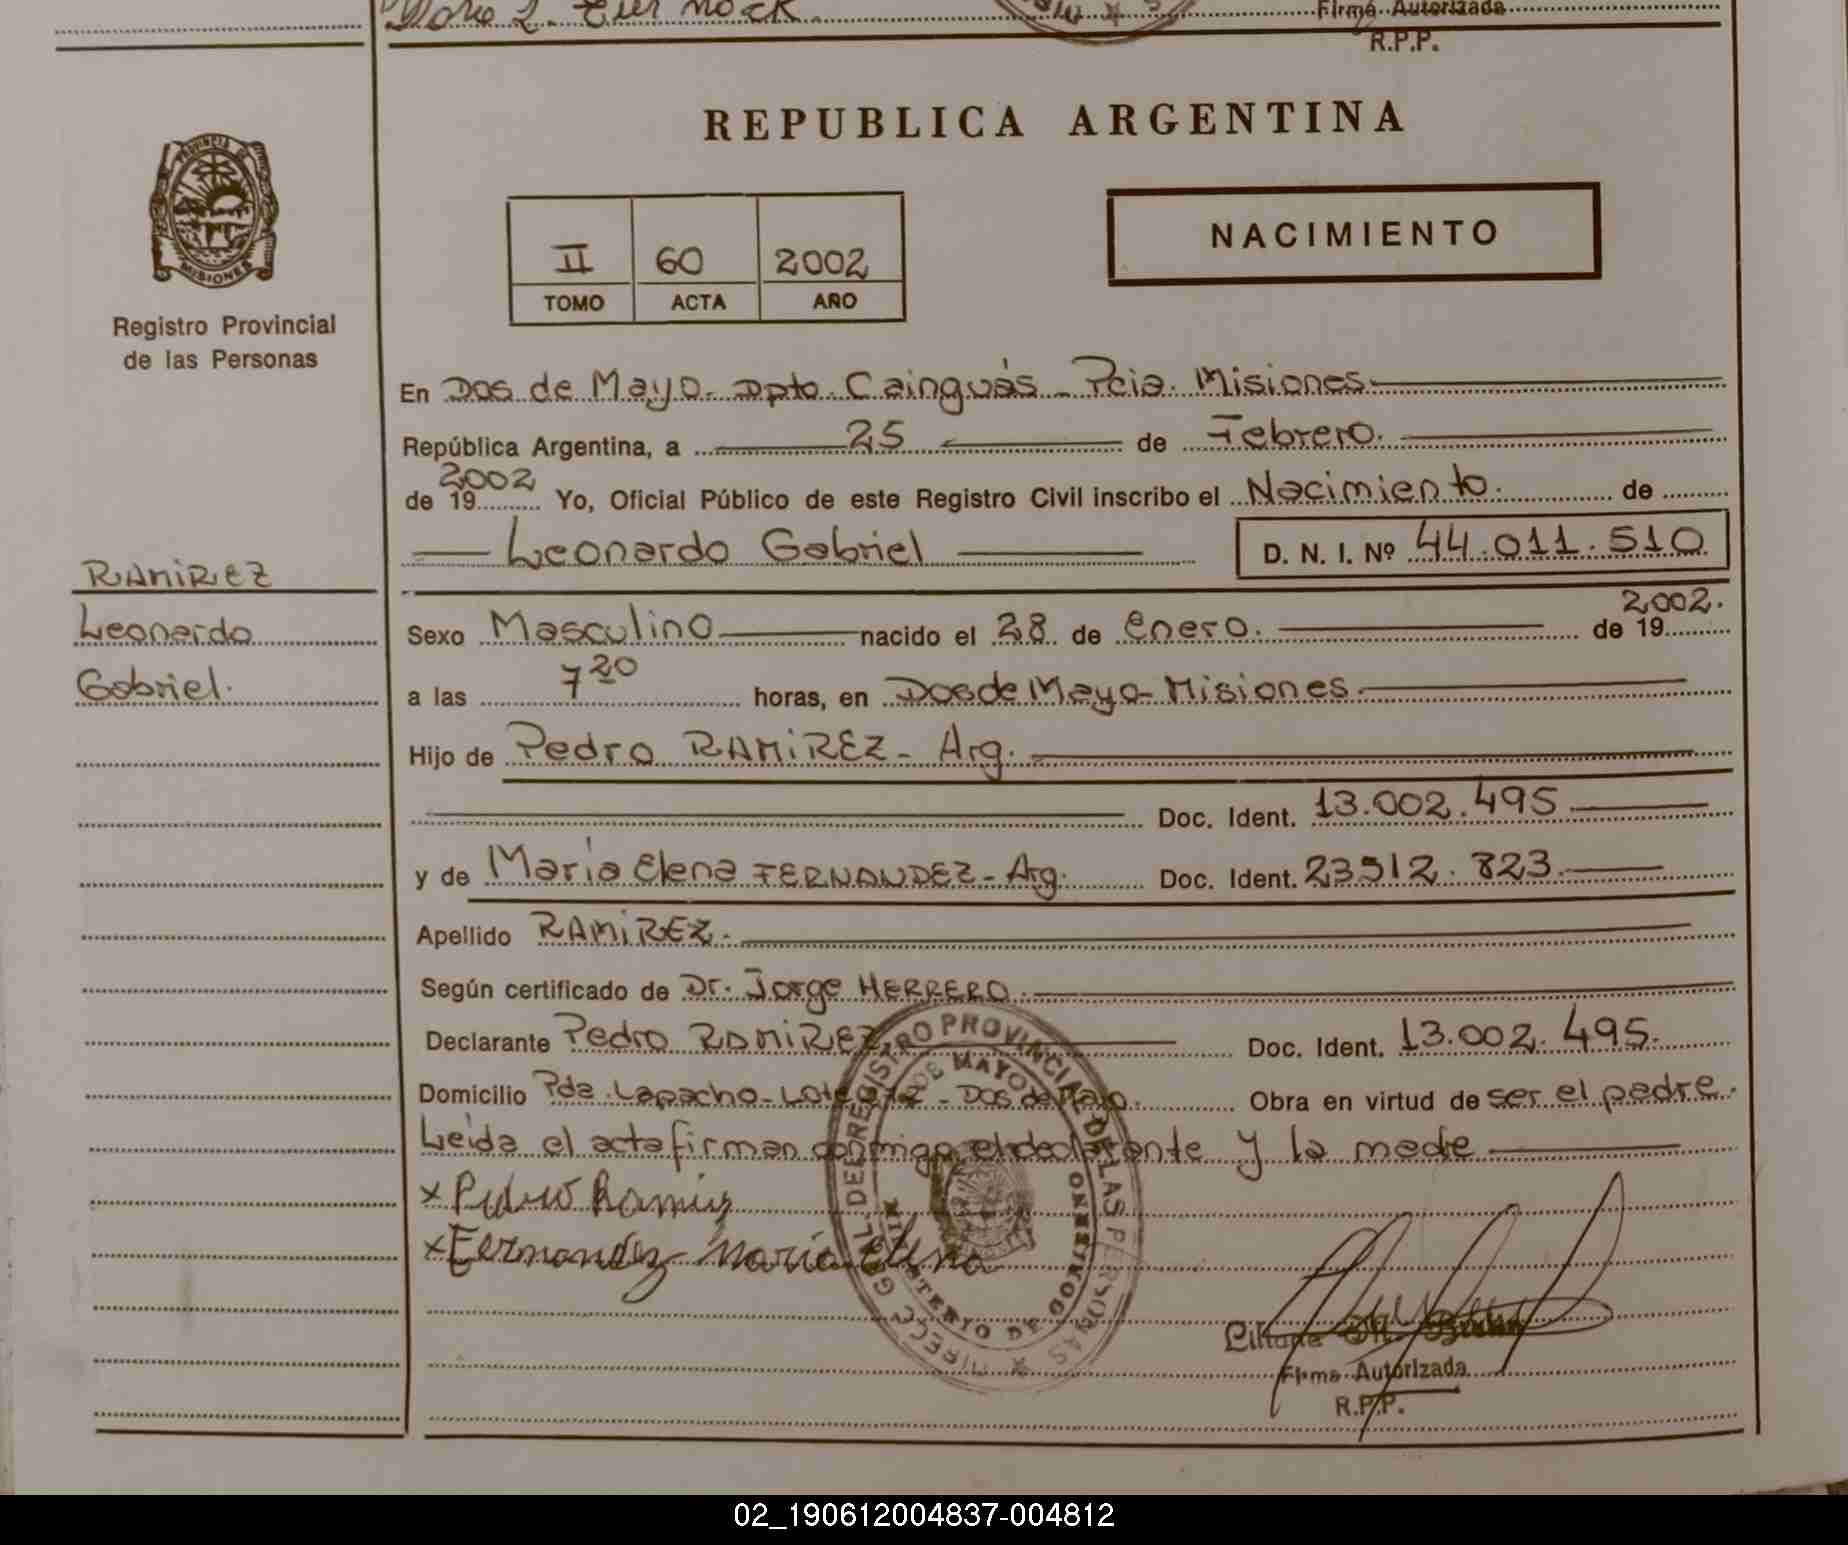 Firma Autorizada
R.P.P.
REPUBLICA ARGENTINA
PROVINCIA DE
MISIONES
Registro Provincial
de las Personas
II 60 2002
TOMO ACTA AÑO
NACIMIENTO
En Dos de Mayo - Dpto. Cainguás - Pcia. Misiones.
República Argentina, a 25 de Febrero.
de 19 2002 Yo, Oficial Público de este Registro Civil inscribo el Nacimiento. de
Leonardo Gabriel D. N. I. Nº 44.011.510
RAMIREZ
Leonardo
Gabriel.
Sexo Masculino nacido el 28 de Enero. de 19 2002.
a las 7 20 horas, en Dos de Mayo - Misiones.
Hijo de Pedro RAMIREZ - Arg.
Doc. Ident. 13.002.495
y de María Elena FERNANDEZ - Arg. Doc. Ident. 23.912.823.
Apellido RAMIREZ.
Según certificado de Dr. Jorge HERRERO.
Declarante Pedro RAMIREZ Doc. Ident. 13.002.495.
Domicilio Pda. Lapacho - Lote - Dos de Mayo. Obra en virtud de ser el padre.
Leida el acta firman conmigo el declarante y la madre
x Pedro Ramirez
x Fernandez Maria Elena
REGISTRO PROVINCIAL DE LAS PERSONAS
DE MAYO
MINISTERIO DE GOBIERNO
Firma Autorizada
R.P.P.
02_190612004837-004812